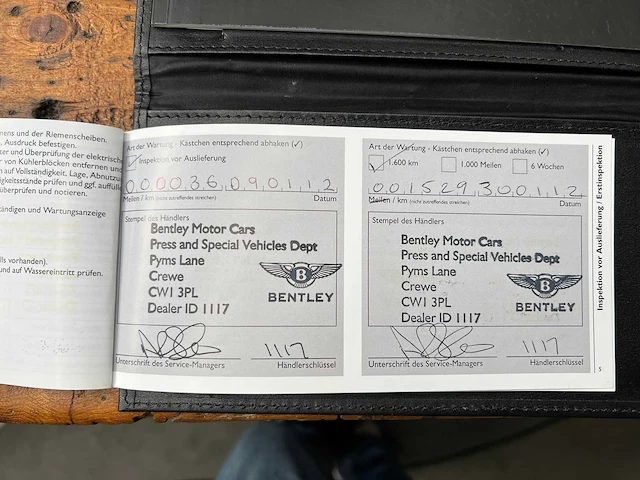 und der Riemenscheiben.
Ausdruck befestigen.
und Überprüfung der elektrischen
von Kühlerblöcken entfernen und
auf Vollständigkeit, Lage, Abnutzu
prüfen und ggf. auffülle
überprüfen und notieren.
ständigen und Wartungsanzeige
vorhanden).
und auf Wassereintritt prüfen.
Art der Wartung - Kästchen entsprechend abhaken (✓)
Inspektion vor Auslieferung
000036 090112
Meilen / km (nicht zutreffendes streichen) Datum
Stempel des Händlers
Bentley Motor Cars
Press and Special Vehicles Dept
Pyms Lane
Crewe
CW1 3PL
Dealer ID 1117
B
BENTLEY
1117
Unterschrift des Service-Managers Händlerschlüssel
Art der Wartung - Kästchen entsprechend abhaken (✓)
1.600 km 1.000 Meilen 6 Wochen
001529 300112
Meilen / km (nicht zutreffendes streichen) Datum
Stempel des Händlers
Bentley Motor Cars
Press and Special Vehicles Dept
Pyms Lane
Crewe
CW1 3PL
Dealer ID 1117
B
BENTLEY
1117
Unterschrift des Service-Managers Händlerschlüssel
Inspektion vor Auslieferung / Erstinspektion
5